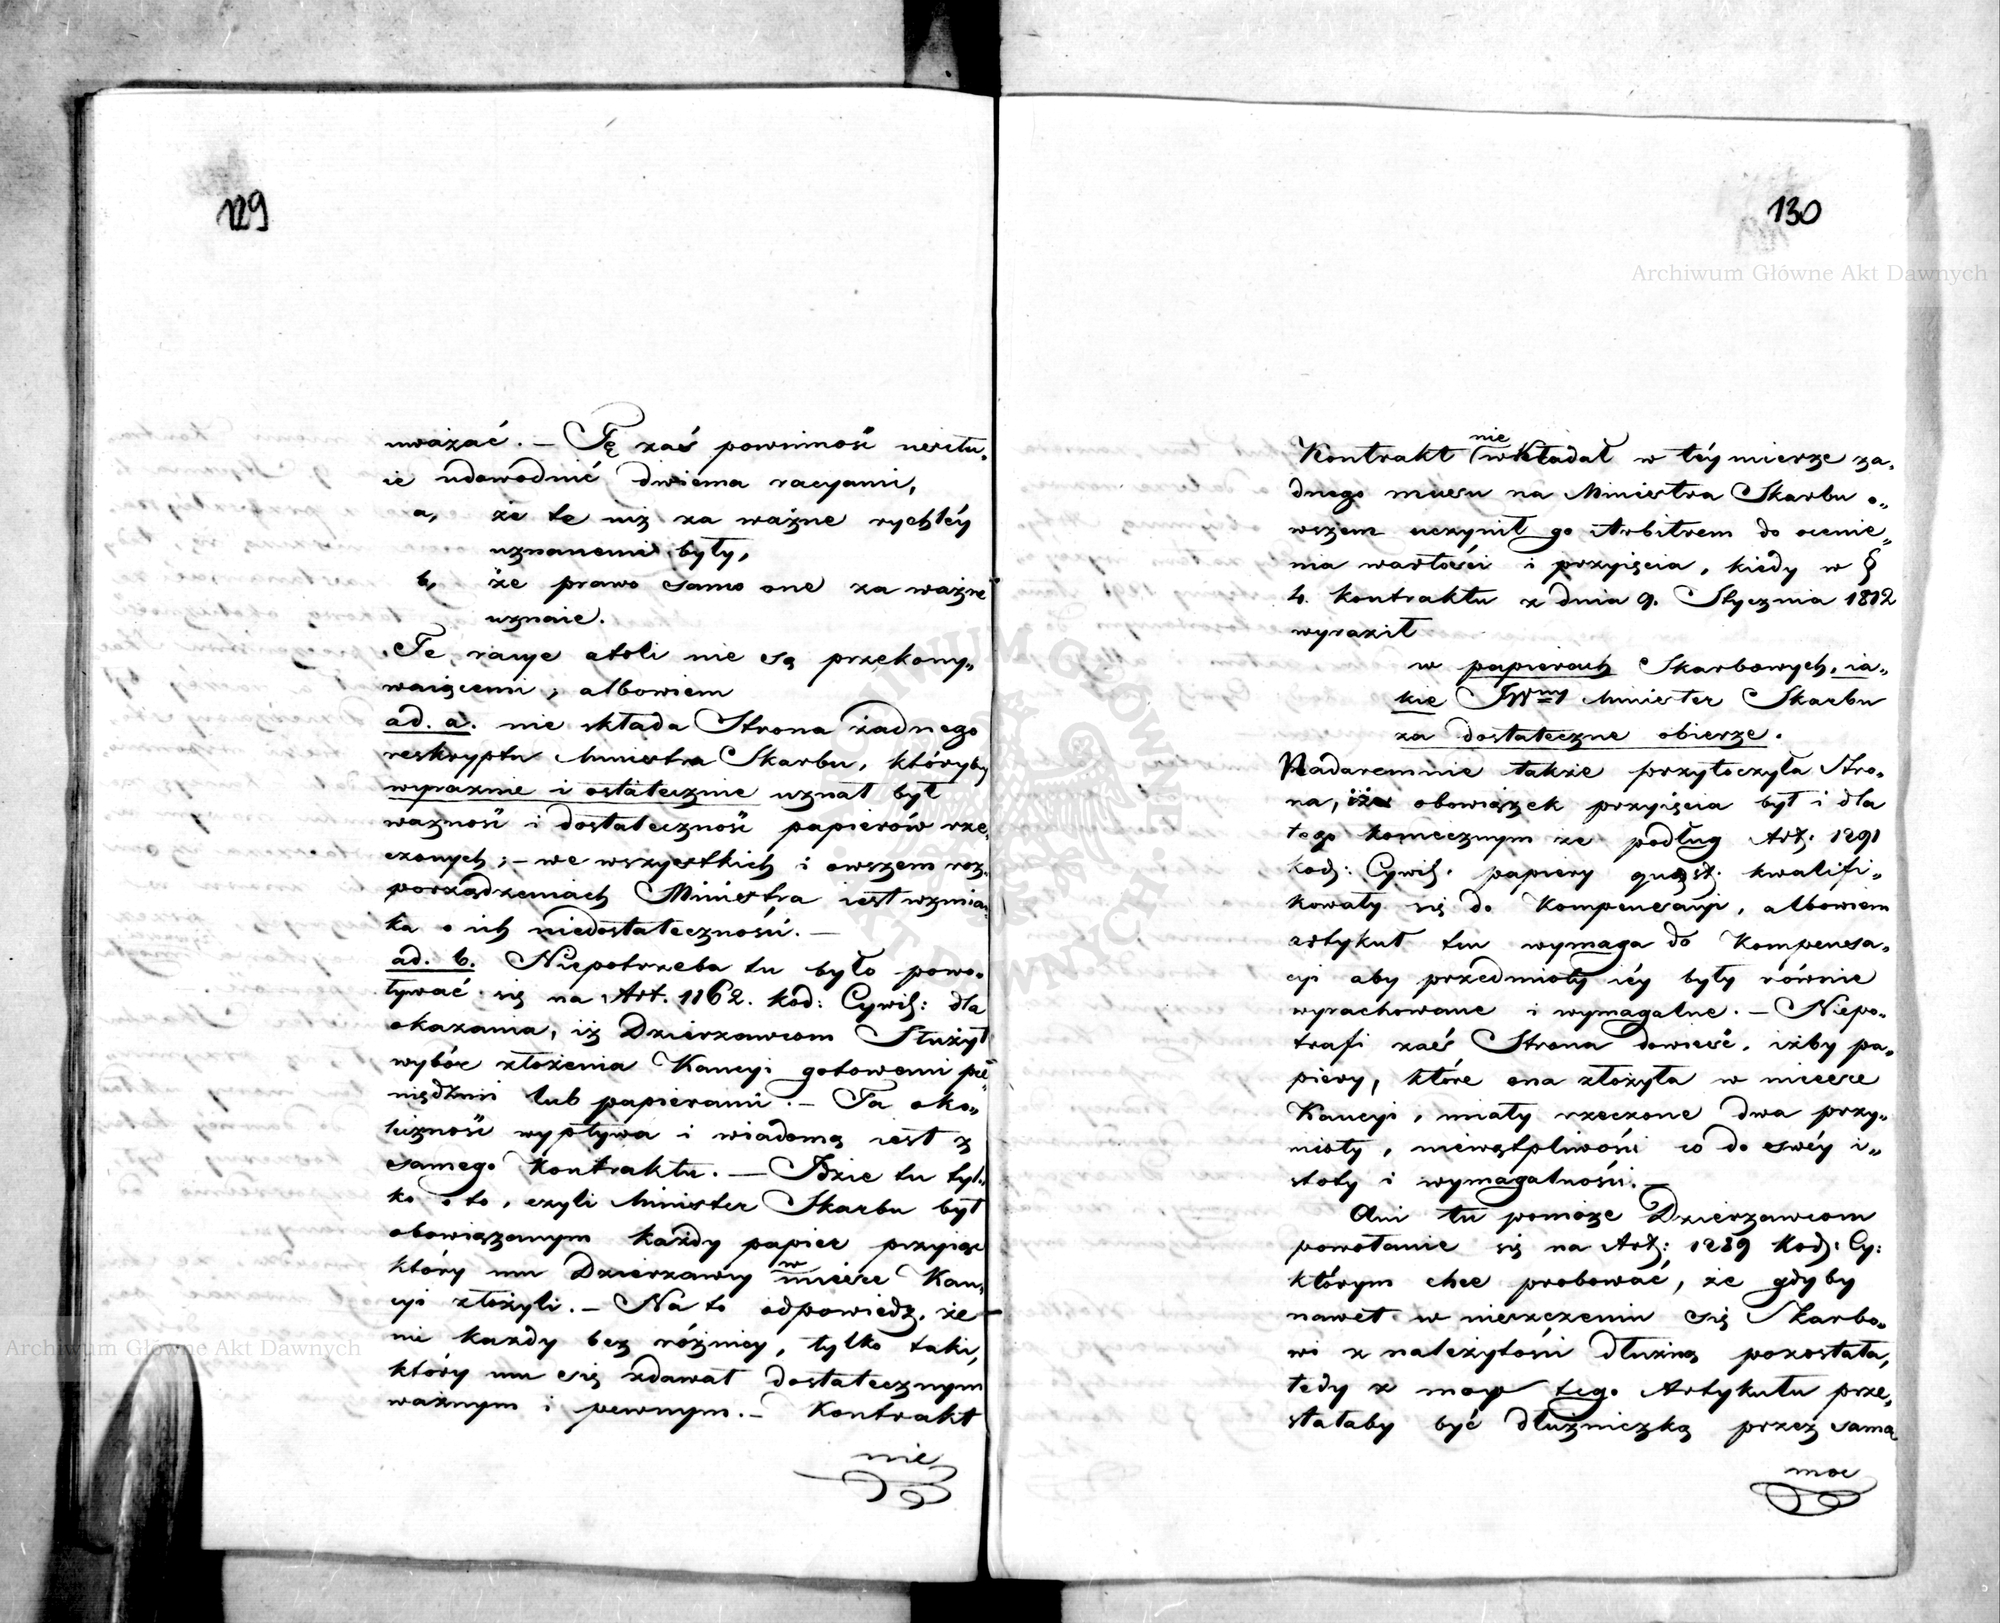 129
uważać. — Tę zaś powinność usiłu„
ie udowodnić dwiema racyami,
a, że te iuż za ważne rychléy
uznanemi były,
b, że prawo samo one za ważne
uznaie.
Te racye atoli nie są przekony„
waiącemi, albowiem
ad. a. nie składa Strona żadnego
reskryptu Ministra Skarbu, któryby
wyraźnie i ostatecznie uznał był
ważność i dostateczność papierów rze„
czonych; — we wszystkich i owszem roz„
porządzeniach Ministra iest wzmian„
ka o ich niedostateczności. —
ad. b. Niepotrzeba tu było powo„
ływać się na Art. 1162. kod: Cywil: dla
okazania, iż Dzierzawcom Służył
wybór złożenia Kaucyi gotowemi pie„
niędzmi lub papierami. — Ta oko„
liczność wypływa i wiadomą iest z
samego Kontraktu. — Idzie tu tyl„
ko o to, czyli Minister Skarbu był
obowiązanym każdy papier przyiąć
który mu Dzierzawcy w mieisce Kau„
cyi złożyli. — Na to odpowiedź, że
nie każdy bez różnicy, tylko taki,
który mu się zdawał dostatecznym
ważnym i pewnym. — Kontrakt
nie
130
Kontrakt nie wkładał w téy mierze ża„
dnego musu na Ministra Skarbu o„
wszem uczynił go Arbitrem do ocenie„
nia wartości i przyięcia, kiedy w §
4. kontraktu z dnia 9. Stycznia 1812
wyraził
w papierach Skarbowych, ia„
kie JWny Minister Skarbu
za dostateczne obierze.
Nadaremnie także przytoczyła Stro„
na, iż obowiązek przyięcia był i dla
tego koniecznym że podług Art. 1291
kod: Cywil. papiery quaest. kwalifi„
kowały się do Kompensacyi, albowiem
artykuł tu wymaga do Kompensa„
cyi aby przedmioty iéy były równie
wyrachowane i wymagalne. — Niepo„
trafi zaś Strona dowieść, iżby pa„
piery, które ona złożyła w mieisce
Kaucyi, miały rzeczone dwa przy„
mioty, niewątpliwości co do swéy i„
stoty i wymagalności. —
Ani tu pomoże Dzierzawcom
powołanie się na Art: 1289 Kod: Cy:
którym chce probować, że gdyby
nawet w uiszczeniu się Skarbo„
wi z należytości dłużną pozostała,
tedy z mocy tego Artykułu prze„
stałaby być dłużniczką przez samą
moc
Archiwum Główne Akt Dawnych
Archiwum Główne Akt Dawnych
ARCHIWUM GŁÓWNE AKT DAWNYCH